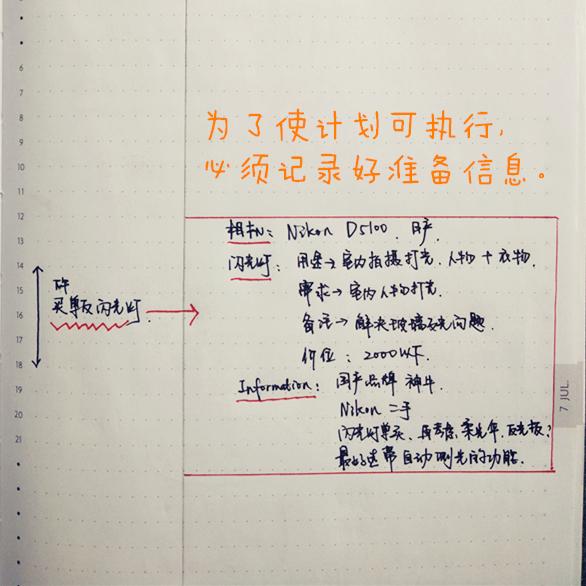 为了使计划可执行,
必须记录好准备信息。
5
6
7
8
9
10
11
12
13
14
15
16
17
18
19
20
21
买单反闪光灯.
相机: Nikon D5100. 日产
闪光灯: 用途→室内拍摄打光. 人物+衣物.
需求→室内人物打光.
备注→解决玻璃反光问题.
价位: 2000以下.
Information: 国产品牌 神牛.
Nikon 二手
闪光灯单买、再考虑柔光伞、反光板?
最好还带自动测光的功能.
7 JUL.